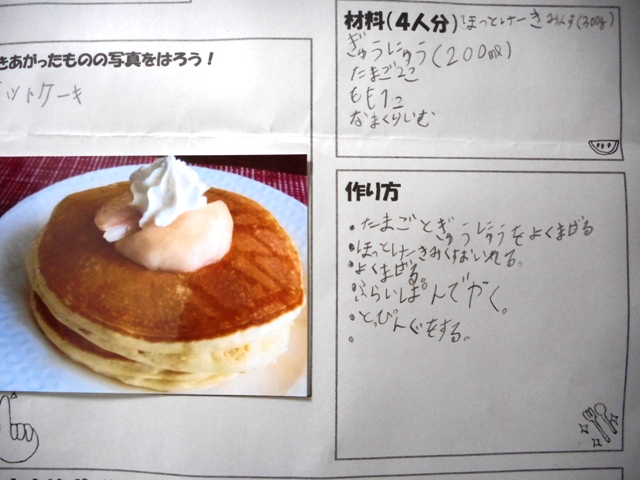 きあがったものの写真をはろう！
ットケーキ
材料(4人分) ほっとけーきみんす(300g)
ぎゅうにゅう(200ml)
たまご2こ
もも1こ
なまくりいむ
作り方
・たまごとぎゅうにゅうをよくまぜる
・ほっとけーきみっくすをいれる。
・よくまぜる。
・ふらいぱんでやく。
・とっぴんぐをする。